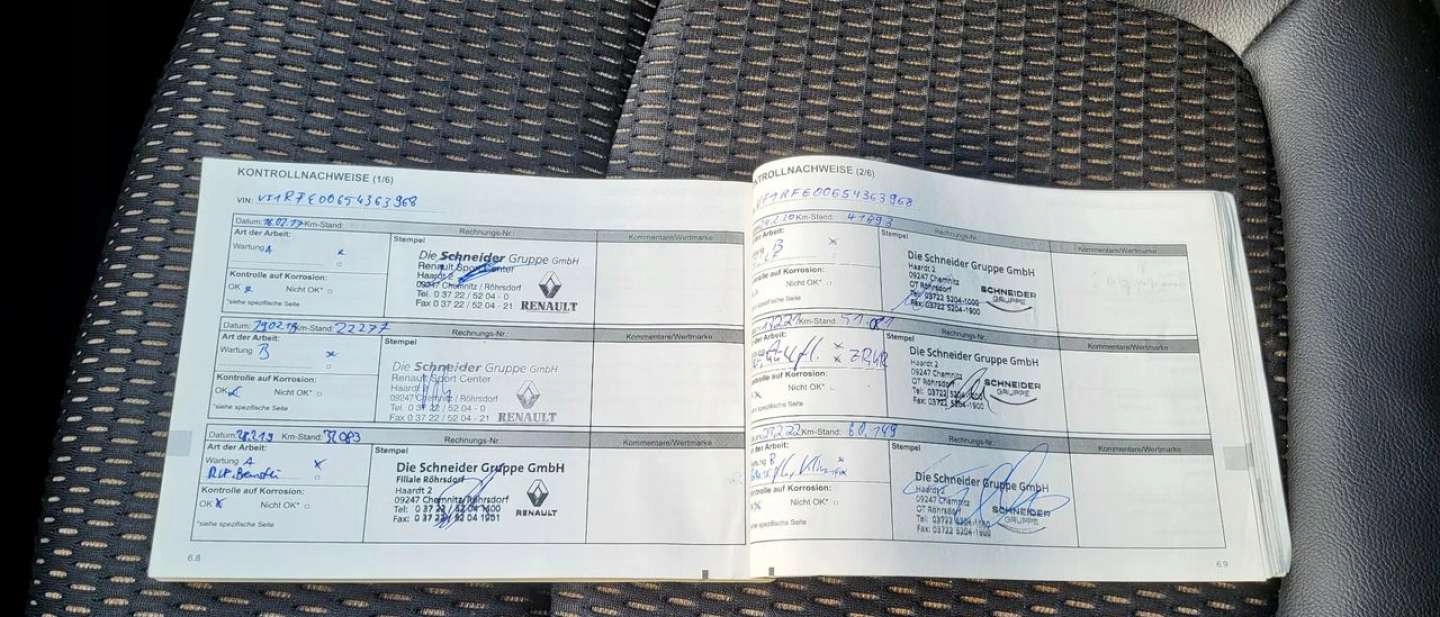 KONTROLLNACHWEISE (1/6)
VIN: VF1RFE00654363968
Datum: 16.02.17 Km-Stand: Rechnungs-Nr.: Kommentare/Wertmarke
Art der Arbeit: Stempel
Wartung A x
Kontrolle auf Korrosion:
OK x Nicht OK*
*siehe spezifische Seite
Die Schneider Gruppe GmbH
Renault Sport Center
Haardt 2
09247 Chemnitz / Röhrsdorf
Tel. 0 37 22 / 52 04 - 0
Fax 0 37 22 / 52 04 - 21
RENAULT
Datum: Km-Stand: 22277 Rechnungs-Nr.: Kommentare/Wertmarke
Art der Arbeit: Stempel
Wartung B x
Kontrolle auf Korrosion:
OK Nicht OK*
*siehe spezifische Seite
Die Schneider Gruppe GmbH
Renault Sport Center
Haardt 2
09247 Chemnitz / Röhrsdorf
Tel. 0 37 22 / 52 04 - 0
Fax 0 37 22 / 52 04 - 21
RENAULT
Datum: Km-Stand: Rechnungs-Nr.: Kommentare/Wertmarke
Art der Arbeit: Stempel
Wartung A x
Kontrolle auf Korrosion:
OK x Nicht OK*
*siehe spezifische Seite
Die Schneider Gruppe GmbH
Filiale Röhrsdorf
Haardt 2
09247 Chemnitz/Röhrsdorf
Tel: 0 37 22/
Fax: 0 37 22/
RENAULT
6.8
NTROLLNACHWEISE (2/6)
VF1RFE00654363968
Km-Stand: 41893 Rechnungs-Nr.: Kommentare/Wertmarke
der Arbeit: Stempel
B x
ntrolle auf Korrosion:
Nicht OK*
spezifische Seite
Die Schneider Gruppe GmbH
Haardt 2
09247 Chemnitz
OT Röhrsdorf
Tel: 03722 5204-1000
Fax: 03722 5204-1900
SCHNEIDER
GRUPPE
Km-Stand: 51.081 Rechnungs-Nr.: Kommentare/Wertmarke
der Arbeit: Stempel
ntrolle auf Korrosion:
Nicht OK*
he spezifische Seite
Die Schneider Gruppe GmbH
Haardt 2
09247 Chemnitz
OT Röhrsdorf
Tel: 03722
Fax: 03722
SCHNEIDER
GRUPPE
Km-Stand: 60.149 Rechnungs-Nr.: Kommentare/Wertmarke
t der Arbeit: Stempel
B x
ontrolle auf Korrosion:
Nicht OK*
he spezifische Seite
Die Schneider Gruppe GmbH
Haardt 2
09247 Chemnitz
OT Röhrsdorf
Tel: 03722
Fax: 03722 5204-1900
SCHNEIDER
GRUPPE
6.9